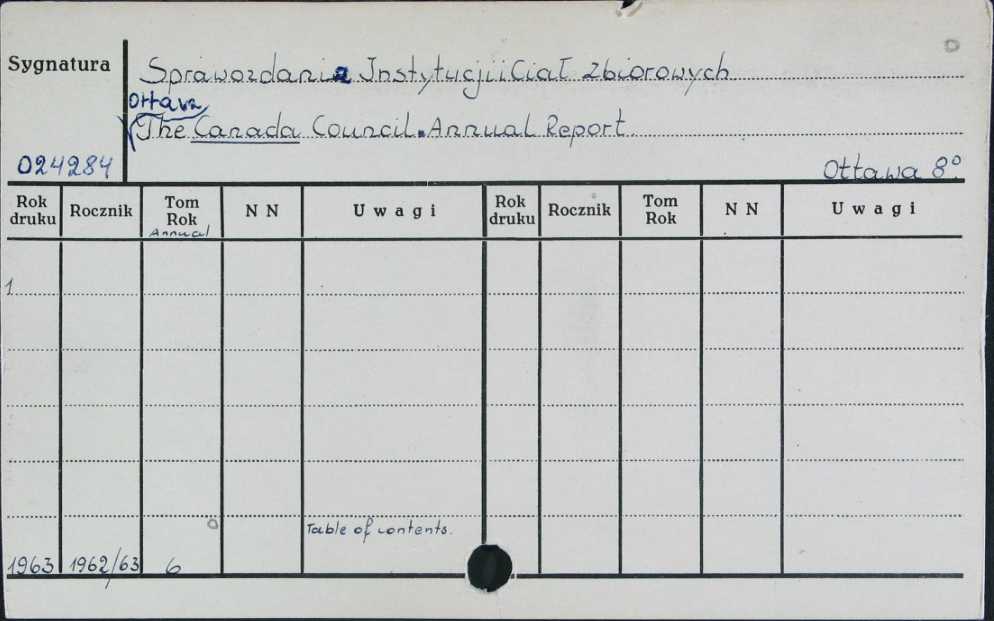 Sygnatura
Sprawozdania Instytucji i Ciał zbiorowych
Ottawa
The Canada Council. Annual Report
024284
Ottawa 8°
Rok druku Rocznik Tom Rok N N Uwagi Rok druku Rocznik Tom Rok N N Uwagi
Annual
1
Table of contents.
1963 1962/63 6